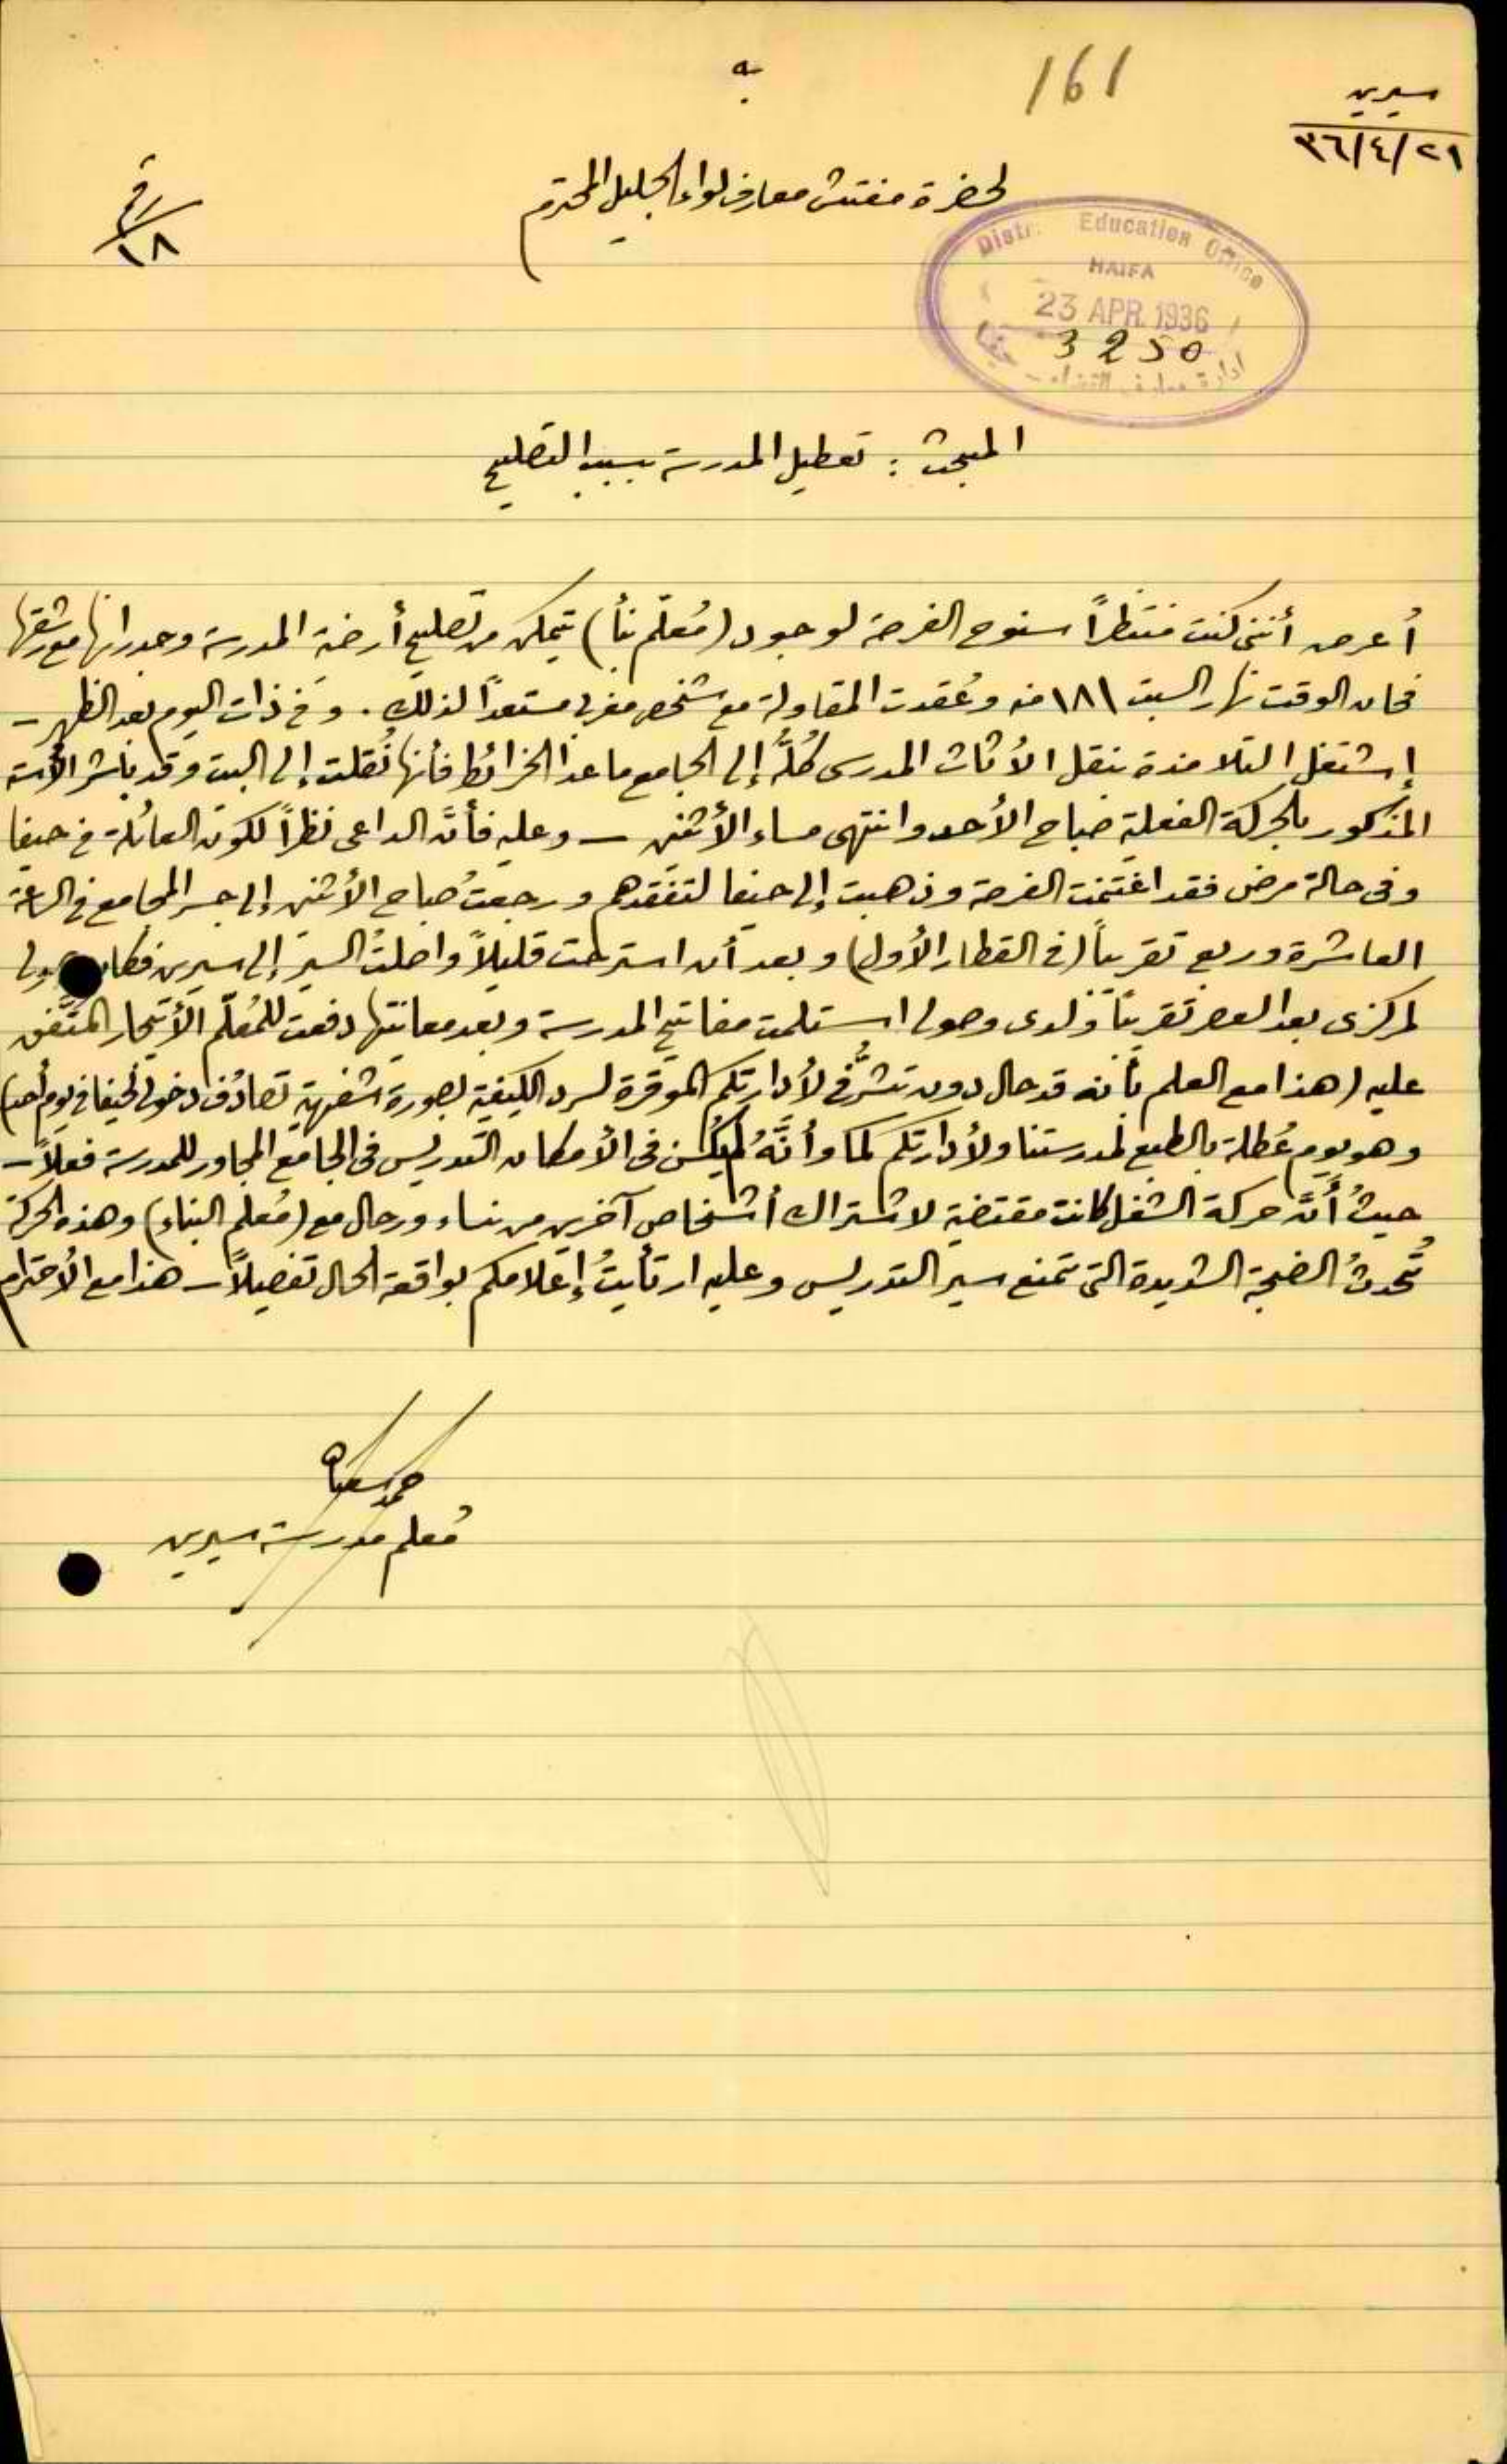 161
سيرين
٢١/٤/٣٦
لحضرة مفتش معارف لواء الجليل المحترم
١٨
Distr. Education Office
HAIFA
23 APR. 1936
3250
ادارة معارف القضاء - حيفا
المبحث : تعطيل المدرسة بسبب التصليح
أعرض أنني كنت منتظراً سنوح الفرصة لوجود (مُعلّم بنأ) يتمكن من تصليح أرضية المدرسة وجدرانها مع شقها
فحان الوقت نهار السبت ١٨١ منه وعُقدت المقاولة مع شخص مغربي مستعداً لذلك . وفي ذات اليوم بعد الظهر -
إشتغل التلامذة بنقل الأثاث المدرسي كُلَّهُ إلى الجامع ما عدا الخرائط فأنها نُقلت إلى البيت وقد باشر الأسته
المذكور بالحركة الفعلية صباح الأحد وانتهى مساء الأثنين - وعليه فأنَّ الداعي نظراً لكون العائلة في حيفا
وفي حالة مرض فقد اغتنمت الفرصة وذهبت إلى حيفا لتفقدهم ورجعتُ صباح الأثنين إلى جسر المجامع في الساعة
العاشرة وربع تقريباً (في القطار الأول) وبعد أن استرحت قليلاً واصلتُ السير إلى سيرين فكان وصولي
لمركزي بعد العصر تقريباً ولدى وصولي استلمت مفاتيح المدرسة وبعد معاينتها دفعت للمُعلّم الأيجار المتَّفق
عليه (هذا مع العلم بأنه قد حال دون تشرُّفي لأدارتكم الموقرة لسرد الكيفية بصورة شفهية تصادُف دخولي لحيفا في يوم أحد)
وهو يوم عُطلة بالطبع لمدرستنا ولأدارتكم كما وأنَّهُ لم يكُن في الأمكان التدريس في الجامع المجاور للمدرسة فعلاً -
حيثُ أنَّ حركة الشغل كانت مقتضية لاشتراك أشخاص آخرين من نساء ورجال مع (مُعلم البناء) وهذه الحركة
تُحدثُ الضجة الشديدة التي تمنع سير التدريس وعليه ارتأيتُ إعلامكم بواقعة الحال تفصيلاً - هذا مع الأحترام
مُعلم مدرسة سيرين